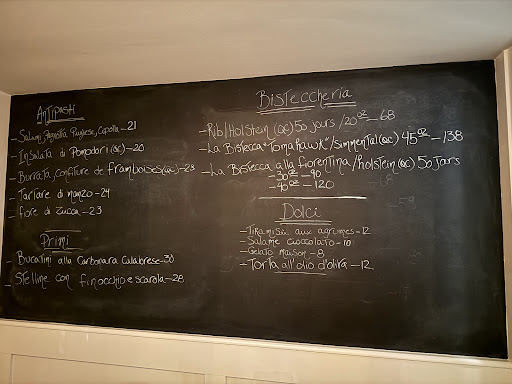 Antipasti
- Salumi, finocchi Pugliese, Capolla - 21
- Insalata di Pomodori (QC) - 20
- Burrata, confiture de framboises (QC) - 28
- Tartare di manzo - 24
- fiore di zucca - 23
Primi
- Bucatini alla Carbonara Calabrese - 30
- Stelline con finocchio e scarola - 28
Bisteccheria
- Rib/Holstein (QC) 50 jours / 20oz - 68
- La Bistecca "Tomahawk" / Simmental (QC) 45oz - 138
- La Bistecca alla fiorentina / Holstein (QC) 50 jars
- 30oz - 90
- 40oz - 120
Dolci
- Tiramisù aux agrumes - 12
- Salame cioccolato - 10
- Gelato maison - 8
- Torta all'olio d'oliva - 12